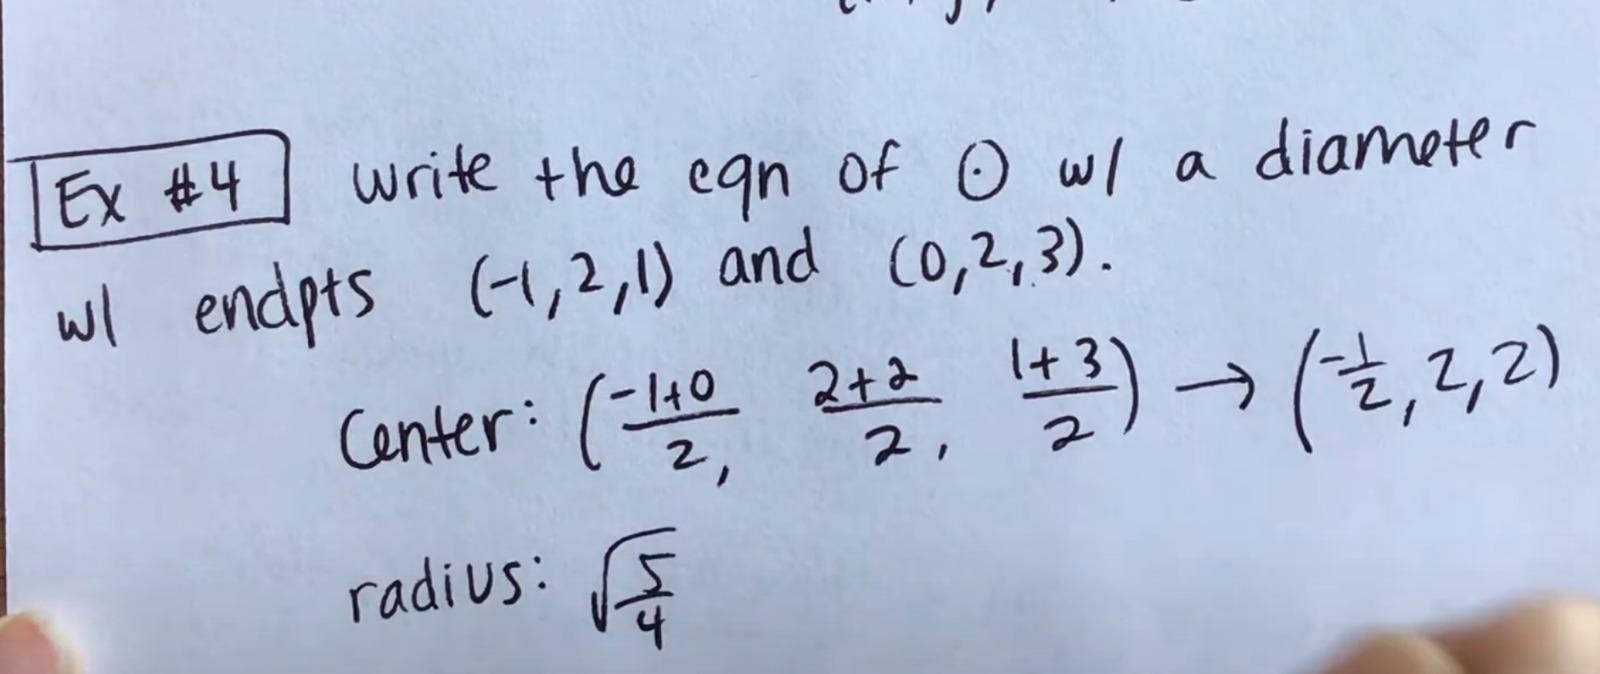 Ex #4 write the eqn of ⊙ w/ a diameter
w/ endpts (-1,2,1) and (0,2,3).
Center: (-1+0/2, 2+2/2, 1+3/2) → (-1/2, 2, 2)
radius: √5/4